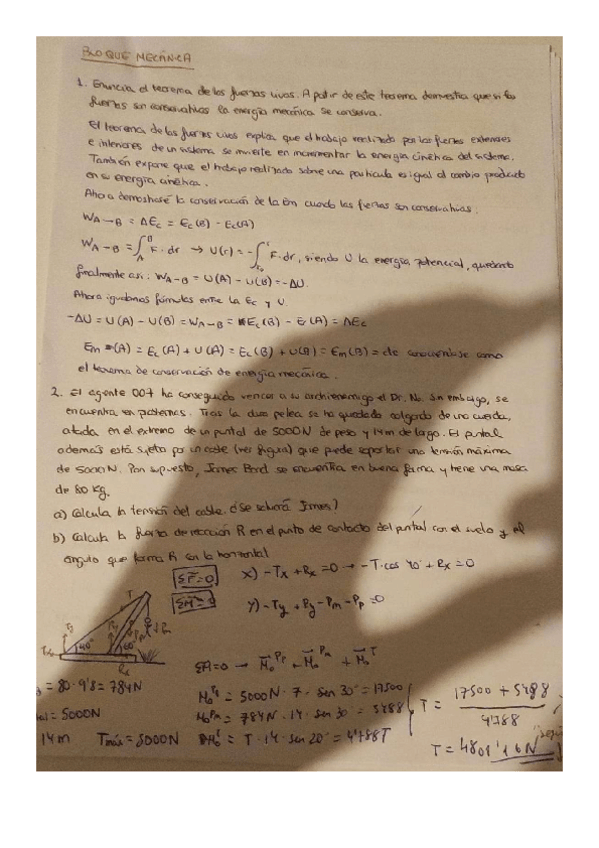 BLOQUE MECÁNICA
1. Enuncia el teorema de las fuerzas vivas. A partir de este teorema demuestra que si las
fuerzas son conservativas la energía mecánica se conserva.
El teorema de las fuerzas vivas explica que el trabajo realizado por las fuerzas exteriores
e interiores de un sistema se invierte en incrementar la energía cinética del sistema.
También expone que el trabajo realizado sobre una partícula es igual al cambio producido
en su energía cinética.
Ahora demostraré la conservación de la Em cuando las fuerzas son conservativas:
WA→B = ΔEc = Ec(B) - Ec(A)
WA→B = ∫_A^B F·dr → U(r) = -∫ F·dr, siendo U la energía potencial, quedando
finalmente así: WA→B = U(A) - U(B) = -ΔU.
Ahora igualamos fórmulas entre la Ec y U.
-ΔU = U(A) - U(B) = WA→B = Ec(B) - Ec(A) = ΔEc
Em (A) = Ec(A) + U(A) = Ec(B) + U(B) = Em(B) = cte conociéndose como
el teorema de conservación de energía mecánica.
2. El agente 007 ha conseguido vencer a su archienemigo el Dr. No. Sin embargo, se
encuentra en problemas. Tras la dura pelea se ha quedado colgado de una cuerda,
atada en el extremo de un puntal de 5000N de peso y 14m de largo. El puntal
además está sujeto por un cable (ver figura) que puede soportar una tensión máxima
de 5000N. Por supuesto, James Bond se encuentra en buena forma y tiene una masa
de 80 kg.
a) Calcula la tensión del cable. ¿Se salvará James?
b) Calcula la fuerza de reacción R en el punto de contacto del puntal con el suelo y el
ángulo que forma R con la horizontal
ΣF=0 x) -Tx + Rx = 0 → -T·cos 40° + Rx = 0
ΣM=0 y) -Ty + Ry - Pm - Pp = 0
T 40° 60° Rx
ΣM=0 → Mo^Pp + Mo^Pm + Mo^T
= 80·9'8 = 784N Mo^Pp = 5000N · 7 · sen 30° = 17500
= 5000N Mo^Pm = 784N · 14 · sen 30° = 5488
14m Tmáx = 5000N Mo^T = T · 14 · sen 20° = 4'788T
T = (17500 + 5488) / 4'788
T = 4801'16N